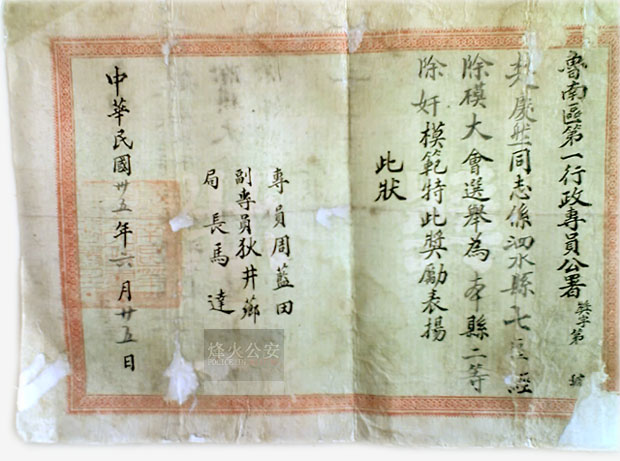 魯南區第一行政專員公署
獎字第 號
趙慶然同志係泗水縣七區經
除模大會選舉為本縣二等
除奸模範特此獎勵表揚
此狀
專員周藍田
副專員狄井薌
局長馬達
中華民國卅五年六月廿五日
烽火公安